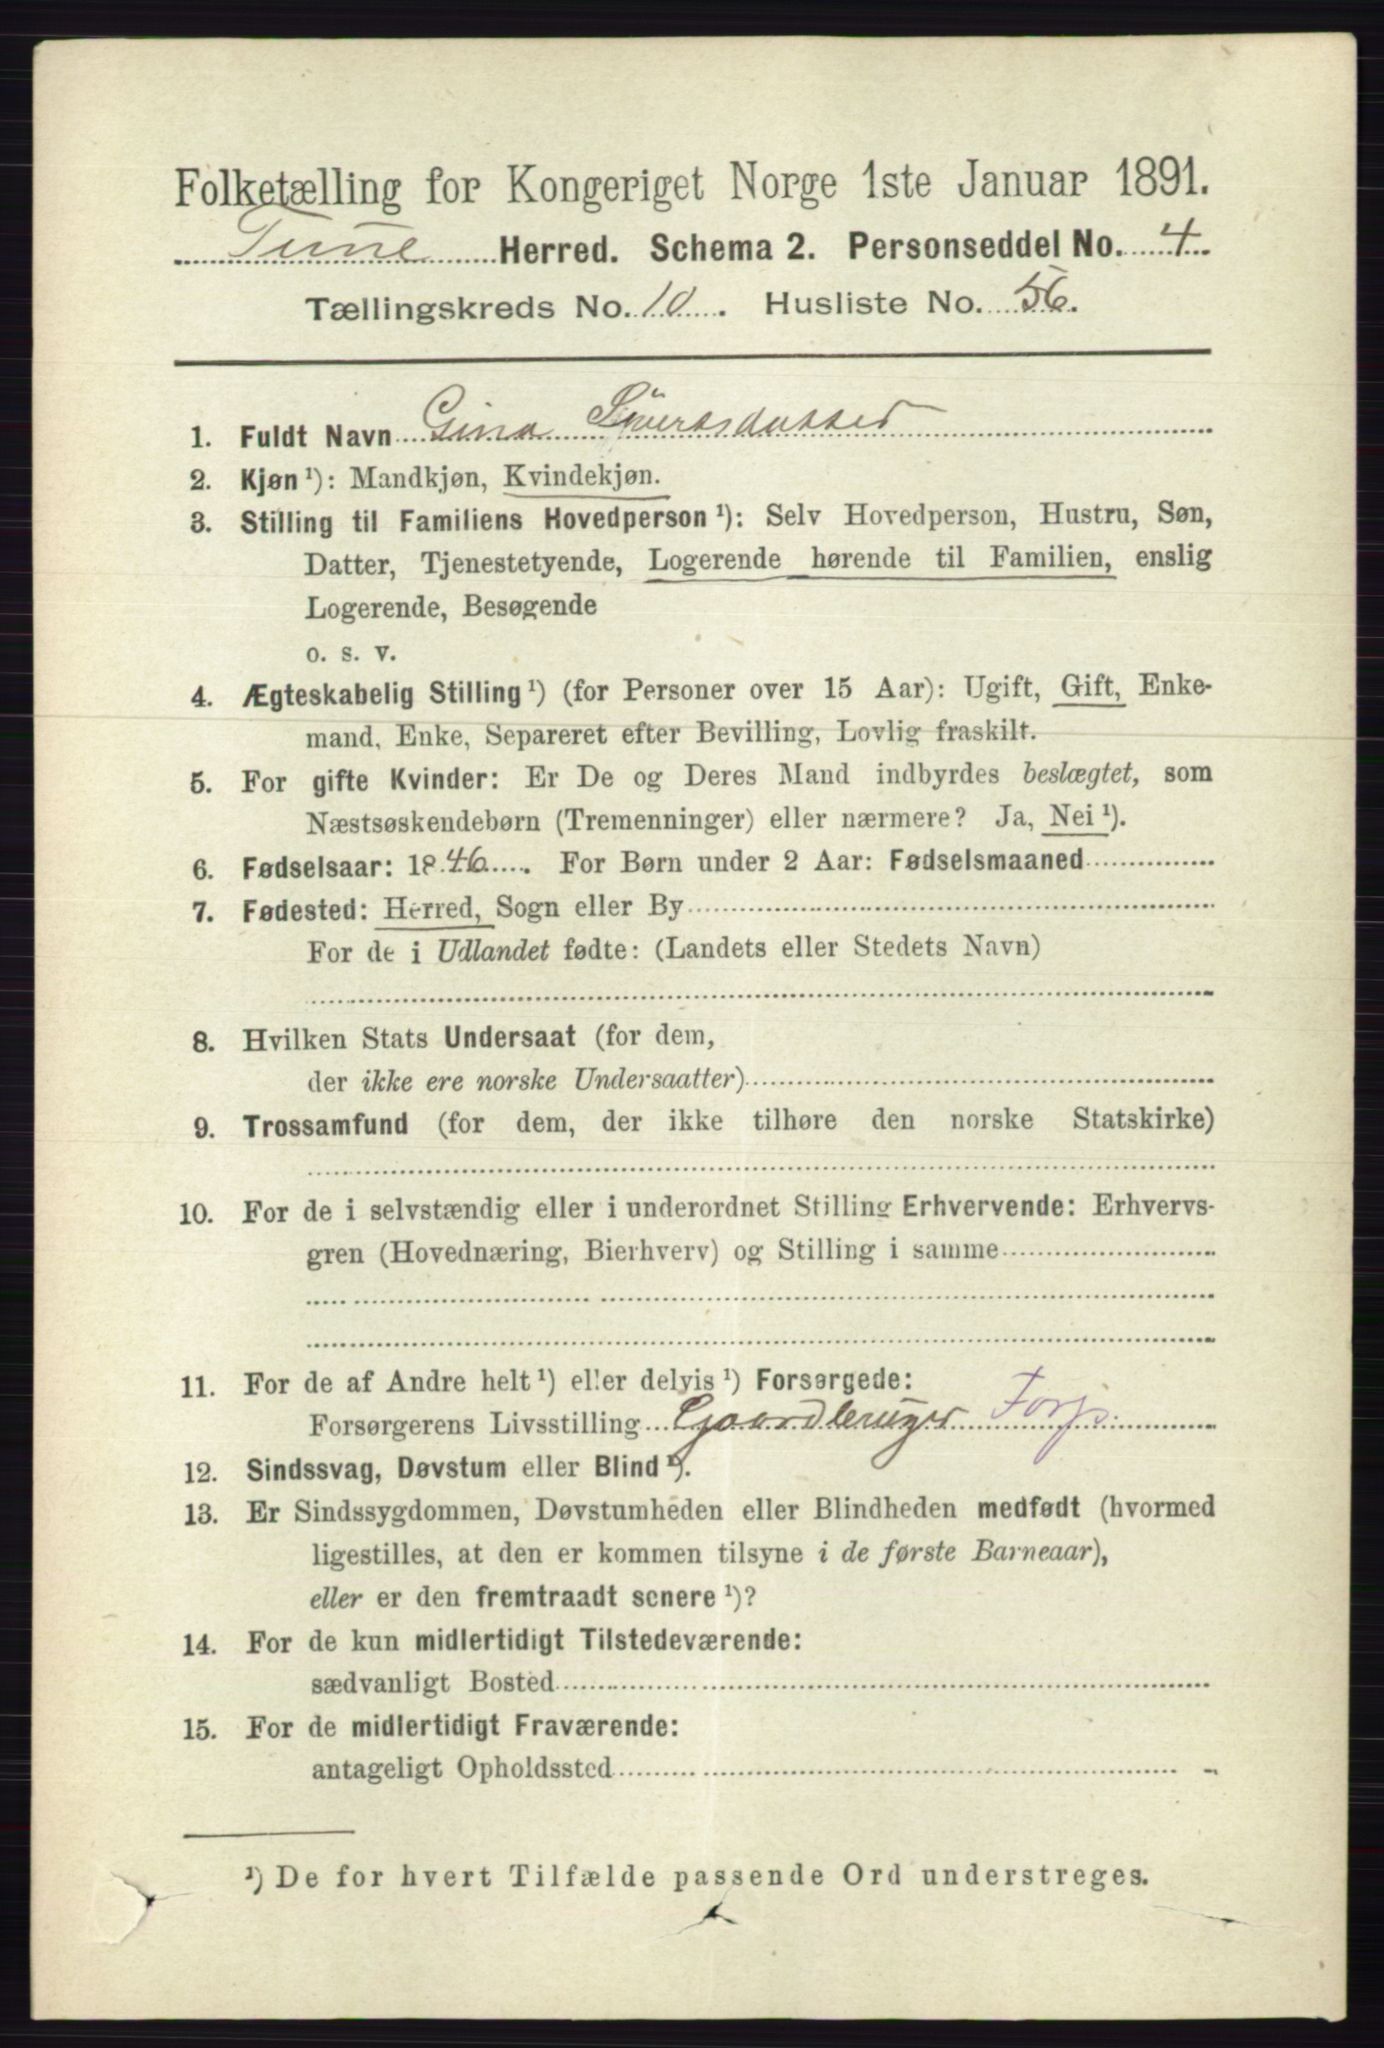 Folketælling for Kongeriget Norge 1ste Januar 1891.
Tune Herred. Schema 2. Personseddel No. 4
Tællingskreds No. 10. Husliste No. 56.
1. Fuldt Navn Gina Syversdatter
2. Kjøn ¹): Mandkjøn, Kvindekjøn.
3. Stilling til Familiens Hovedperson ¹): Selv Hovedperson, Hustru, Søn,
Datter, Tjenestetyende, Logerende hørende til Familien, enslig
Logerende, Besøgende
o. s. v.
4. Ægteskabelig Stilling ¹) (for Personer over 15 Aar): Ugift, Gift, Enke-
mand, Enke, Separeret efter Bevilling, Lovlig fraskilt.
5. For gifte Kvinder: Er De og Deres Mand indbyrdes beslægtet, som
Næstsøskendebørn (Tremenninger) eller nærmere? Ja, Nei ¹).
6. Fødselsaar: 1846. For Børn under 2 Aar: Fødselsmaaned
7. Fødested: Herred, Sogn eller By
For de i Udlandet fødte: (Landets eller Stedets Navn)
8. Hvilken Stats Undersaat (for dem,
der ikke ere norske Undersaatter)
9. Trossamfund (for dem, der ikke tilhøre den norske Statskirke)
10. For de i selvstændig eller i underordnet Stilling Erhvervende: Erhvervs-
gren (Hovednæring, Bierhverv) og Stilling i samme
11. For de af Andre helt ¹) eller delvis ¹) Forsørgede:
Forsørgerens Livsstilling Gaardbruger Forp.
12. Sindssvag, Døvstum eller Blind ¹).
13. Er Sindssygdommen, Døvstumheden eller Blindheden medfødt (hvormed
ligestilles, at den er kommen tilsyne i de første Barneaar),
eller er den fremtraadt senere ¹)?
14. For de kun midlertidigt Tilstedeværende:
sædvanligt Bosted
15. For de midlertidigt Fraværende:
antageligt Opholdssted
¹) De for hvert Tilfælde passende Ord understreges.